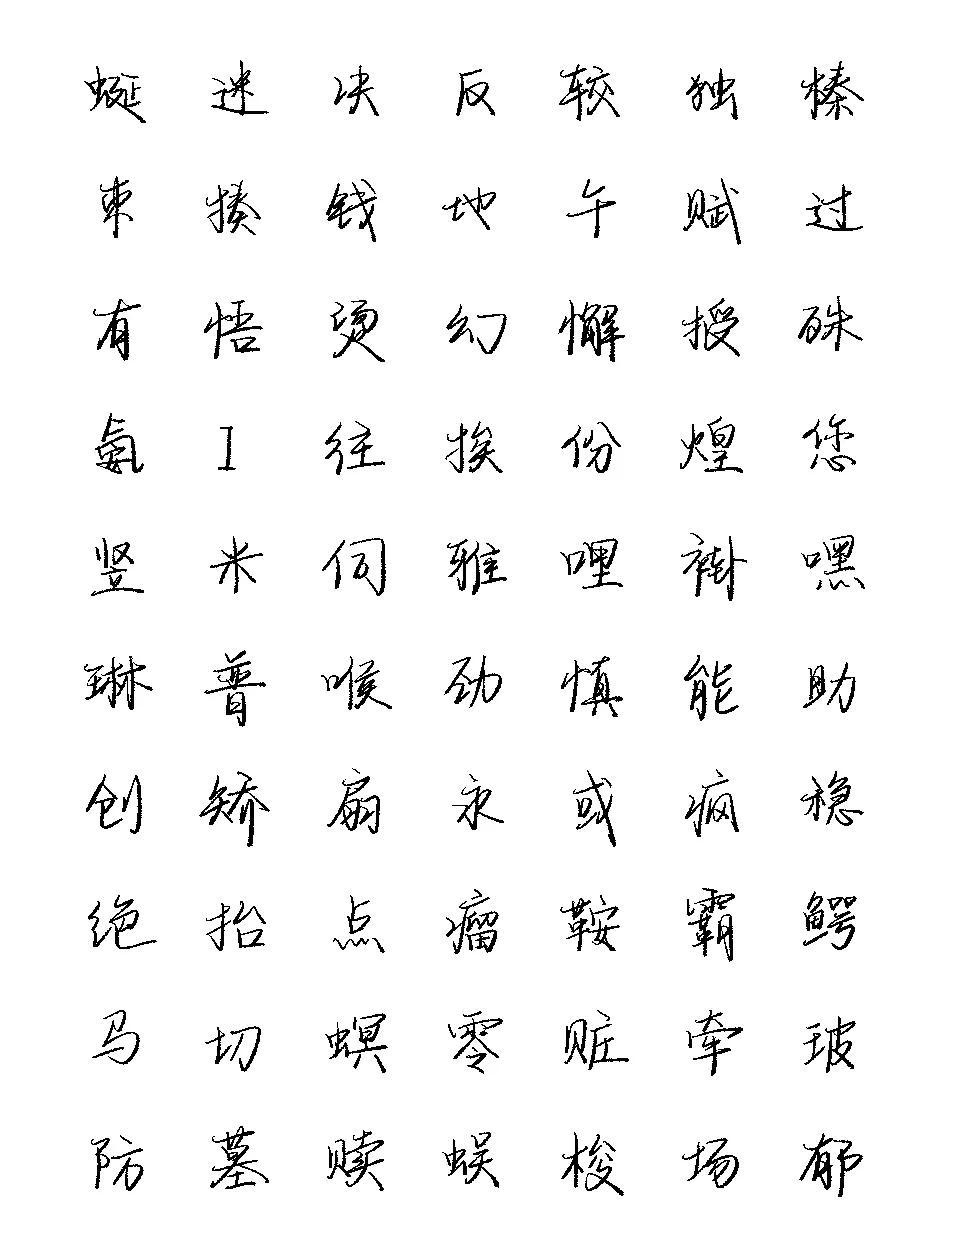 蜒 迷 决 反 较 独 榛
束 揍 钱 地 午 赋 过
有 悟 烫 幻 懈 授 硃
氨 工 往 挨 份 煌 您
竖 米 伺 雅 哩 褂 嘿
琳 普 喉 劲 慎 能 助
创 矫 扇 永 或 疯 稳
绝 抬 点 瘤 鞍 霸 鳄
马 切 螟 零 赃 牵 玻
防 墓 赎 蜈 梭 场 郁